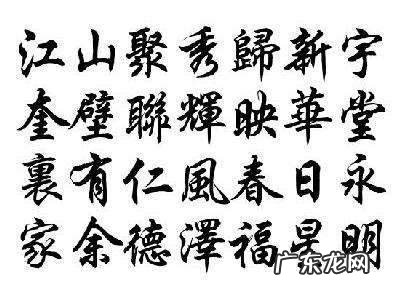 江山聚秀歸新宇
奎壁聯輝映華堂
裏有仁風春日永
家余德澤福星明
广东龙网